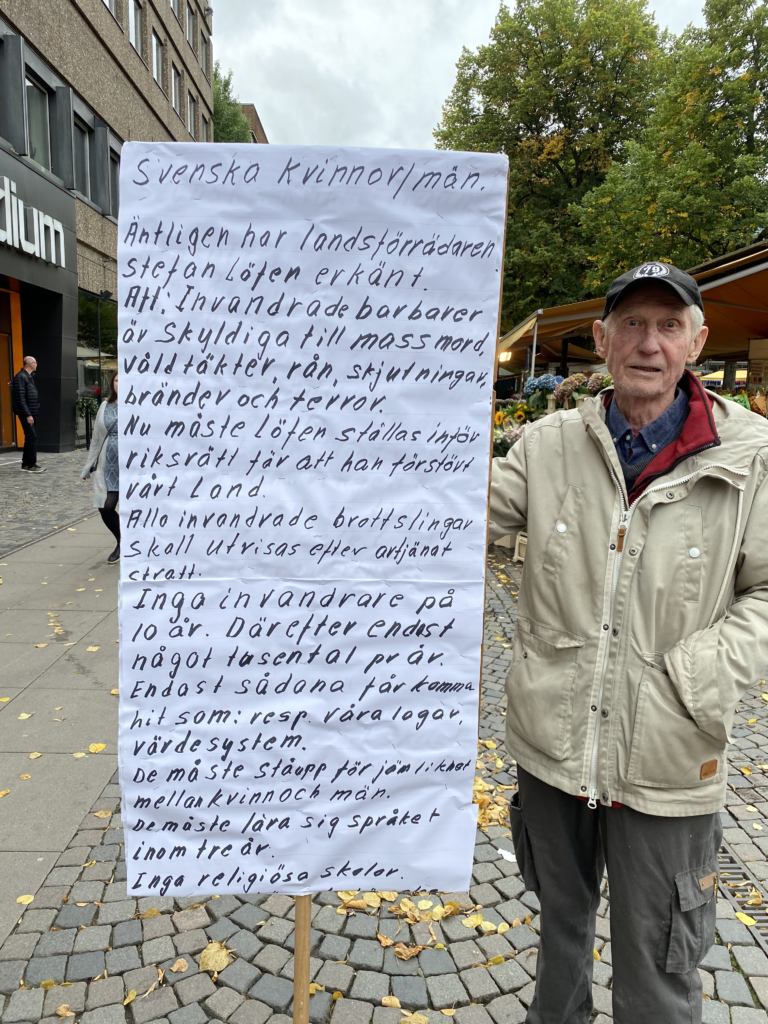 Svenska kvinnor/män.
Äntligen har landsförrädaren
Stefan Löfen erkänt.
Att: Invandrade barbarer
är skyldiga till massmord,
våldtäkter, rån, skjutningar,
bränder och terror.
Nu måste Löfen ställas inför
riksrätt för att han förstört
vårt Land.
Alla invandrade brottslingar
Skall Utvisas efter avtjänat
straff.
Inga invandrare på
10 år. Därefter endast
något tusental pr år.
Endast sådana får komma
hit som: resp. våra lagar,
värdesystem.
De måste ståupp för jämlikhet
mellan kvinnoch män.
De måste lära sig språket
inom tre år.
Inga religiösa skolor.
dium
79